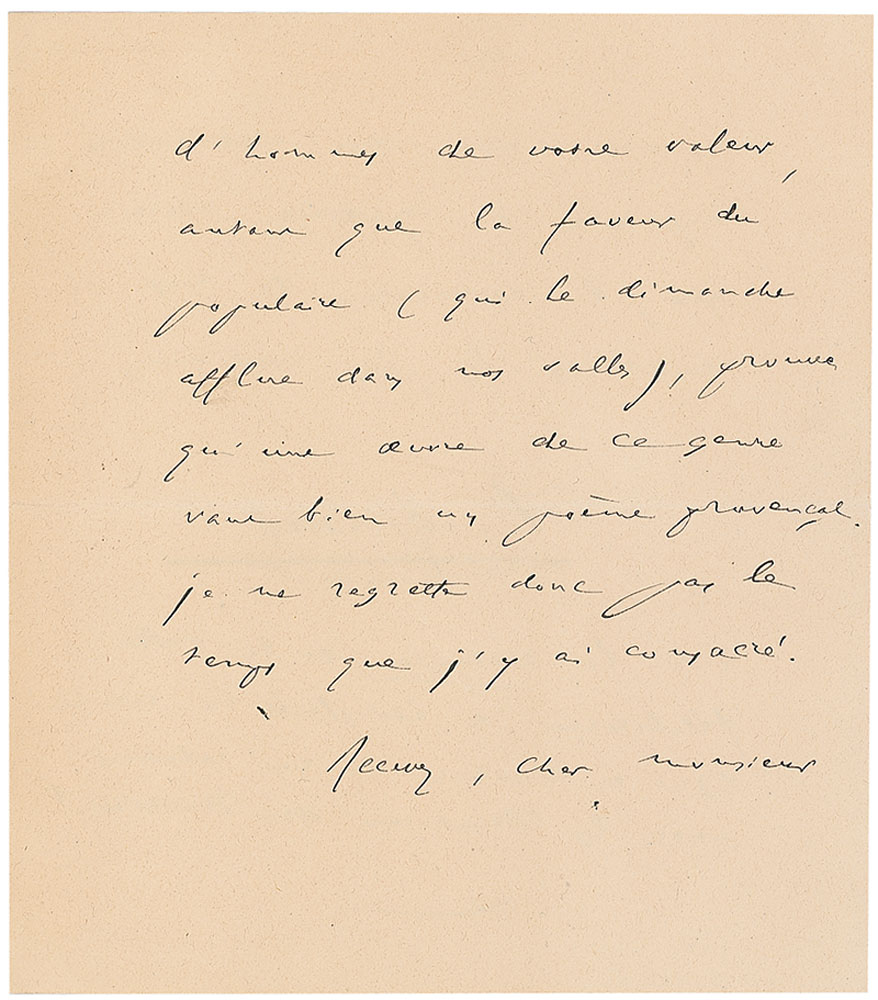 d'hommes de votre valeur,
autant que la faveur du
populaire (qui le dimanche
afflue dans nos salles), prouve
qu'une œuvre de ce genre
vaut bien un poème provençal.
je ne regrette donc pas le
temps que j'y ai consacré.
Recevez, cher monsieur